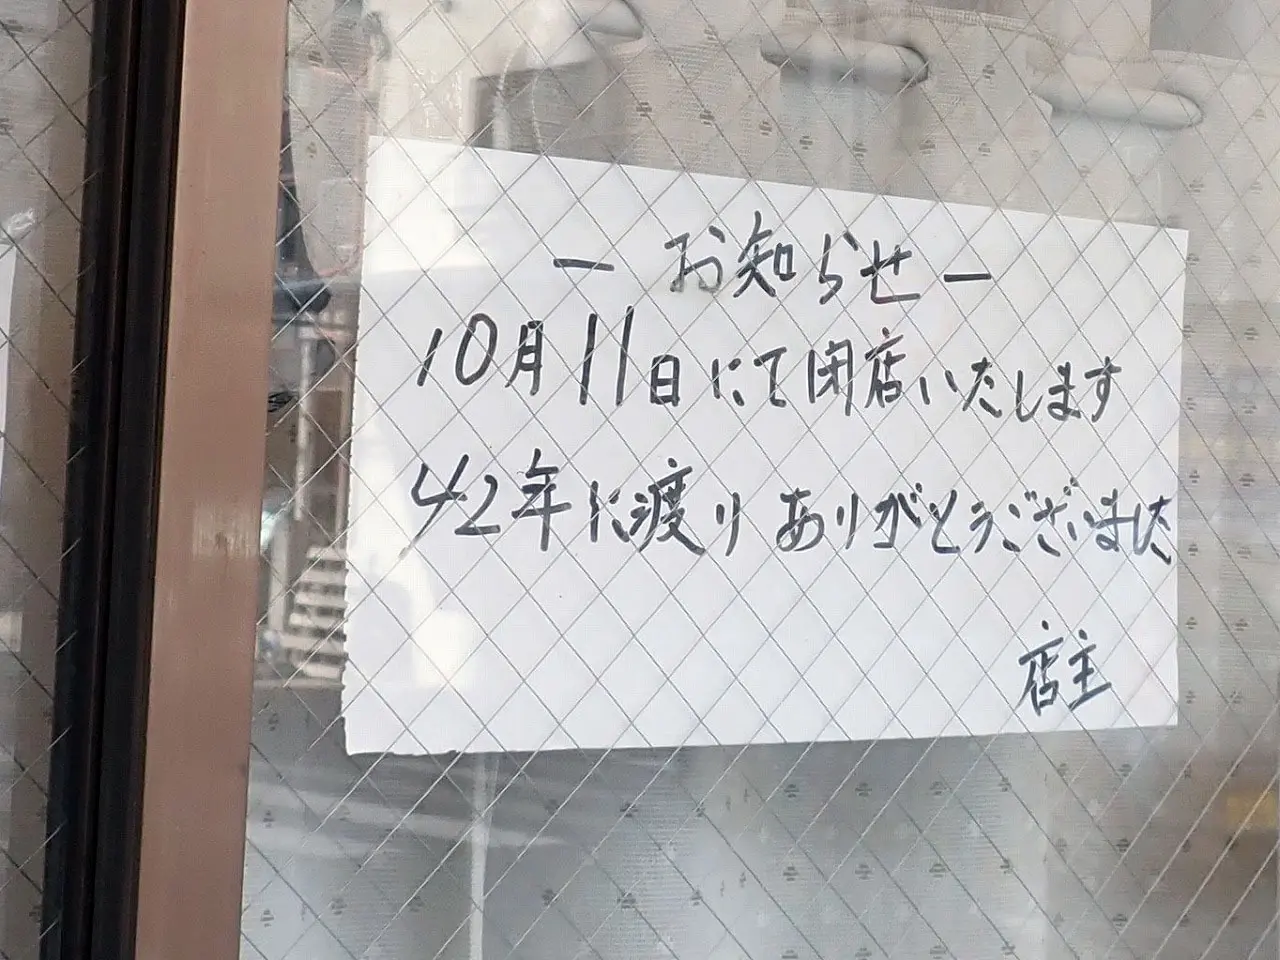 ― お知らせ ―
10月11日にて閉店いたします
42年に渡りありがとうございました
店主